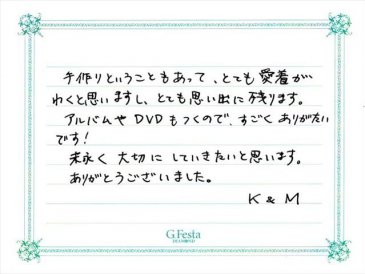 手作りということもあって、とても愛着が
わくと思いますし、とても思い出に残ります。
アルバムや DVD もつくので、すごく ありがたい
です!
末永く 大切に していきたいと思います。
ありがとうございました。
K & M
G.Festa
DIAMOND